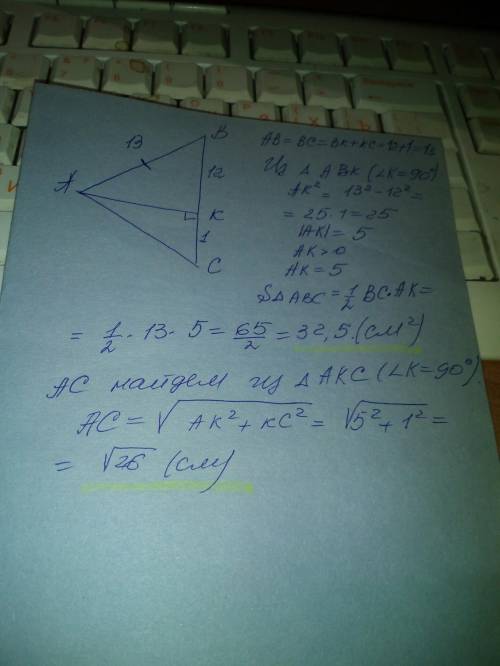 B
13
12
A
K
1
C
AB = BC = BK + KC = 12 + 1 = 13
Из △ ABK (∠K = 90°)
AK² = 13² - 12² =
= 25 · 1 = 25
|AK| = 5
AK > 0
AK = 5
S△ABC = 1/2 BC · AK =
= 1/2 · 13 · 5 = 65/2 = 32,5 (см²)
AC найдем из △ AKC (∠K = 90°).
AC = √(AK² + KC²) = √(5² + 1²) =
= √26 (см)